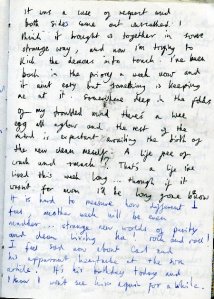 It was a case of respect and
both sides came out unscathed. I
think it brought us together in some
strange way, and now I'm trying to
kick the demons into touch. I've been
back in the priory a week now and
it aint easy but something is keeping
me at it. Somewhere deep in the folds
of my troubled mind there's a wee
egg all aglow, and the rest of the
mind is expectant awaiting the birth of
the new clean me. A life free of
crack and smack!? That's a life I've
lived this week long... though if it
wasnt for mum I'd be long gone now
It is hard to measure how different I
feel, another week will be even
madder... strange new worlds of purity
and clean living, ha! rock and roll!
I feel sad now about Carl and
his apparent heartache at the
article. It's his birthday today and
I know I wont see him again for a while.